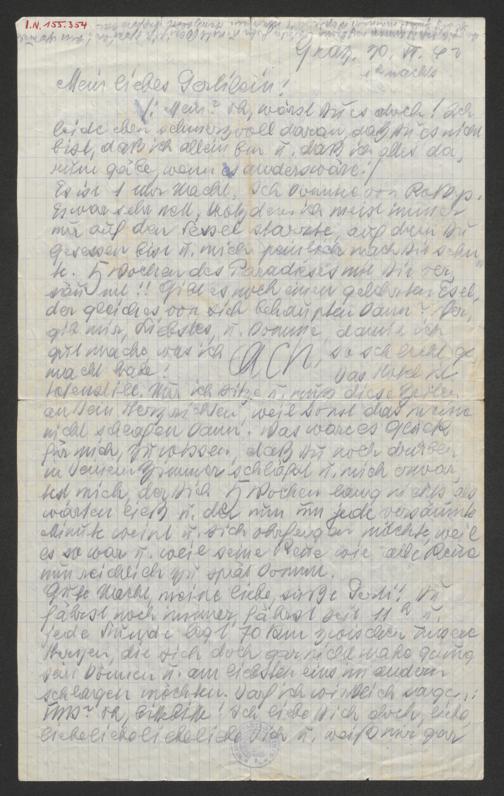 I.N. 155.354
Graz, 20. VI. 42
1h nachts
Mein liebes Gerlilein!
(„Mein“? Oh, wärst Du es doch! Ich
leide eben schmerzvoll daran, daß Du es nicht
bist, daß ich allein bin u. daß ich alles da-
rum gäbe, wenn es anders wäre!)
Es ist 1 Uhr Nacht. Ich komme von
Es war sehr nett, trotzdem ich meist immer
nur auf den Sessel starrte, auf dem Du
gesessen bist u. mich peinlich nach Dir sehn-
te. 5 Wochen des Paradieses mit Dir ver-
säumt!! Gibt es noch einen gelehrten Esel,
der gleiches von sich behaupten kann?
gib mir, Liebstes, u. komme, damit ich
gut mache, was ich so schlecht ge-
macht habe! ACH, Das Hotel ist
totenstill. Nur ich sitze u. muß diese Zeilen
an Dein Herz richten, weil sonst das meine
nicht schlafen kann. Was wäre es Glück
für mich, zu wissen, daß Du noch drüben
in Deinem Zimmer schläfst u. mich erwar-
test, mich, der Dich 5 Wochen lang nichts als
warten ließ u. der nun um jede versäumte
Minute weint u. sich ohrfeigen möchte, weil
es so war u. weil seine Reue wie alle Reue
nun reichlich zu spät kommt.
Gute Nacht, meine liebe, süße Gerli! Du
fährst noch immer, fährst seit 11h u.
jede Stunde legt 70 km zwischen unsere
Herzen, die sich doch gar nicht nahe genug
sein können u. am liebsten eins im andern
schlagen möchten. Darf ich wirklich sagen:
uns? Oh, bittebitte! Ich liebe Dich doch, liebe
liebeliebeliebeliebe Dich u. weiß nur gar